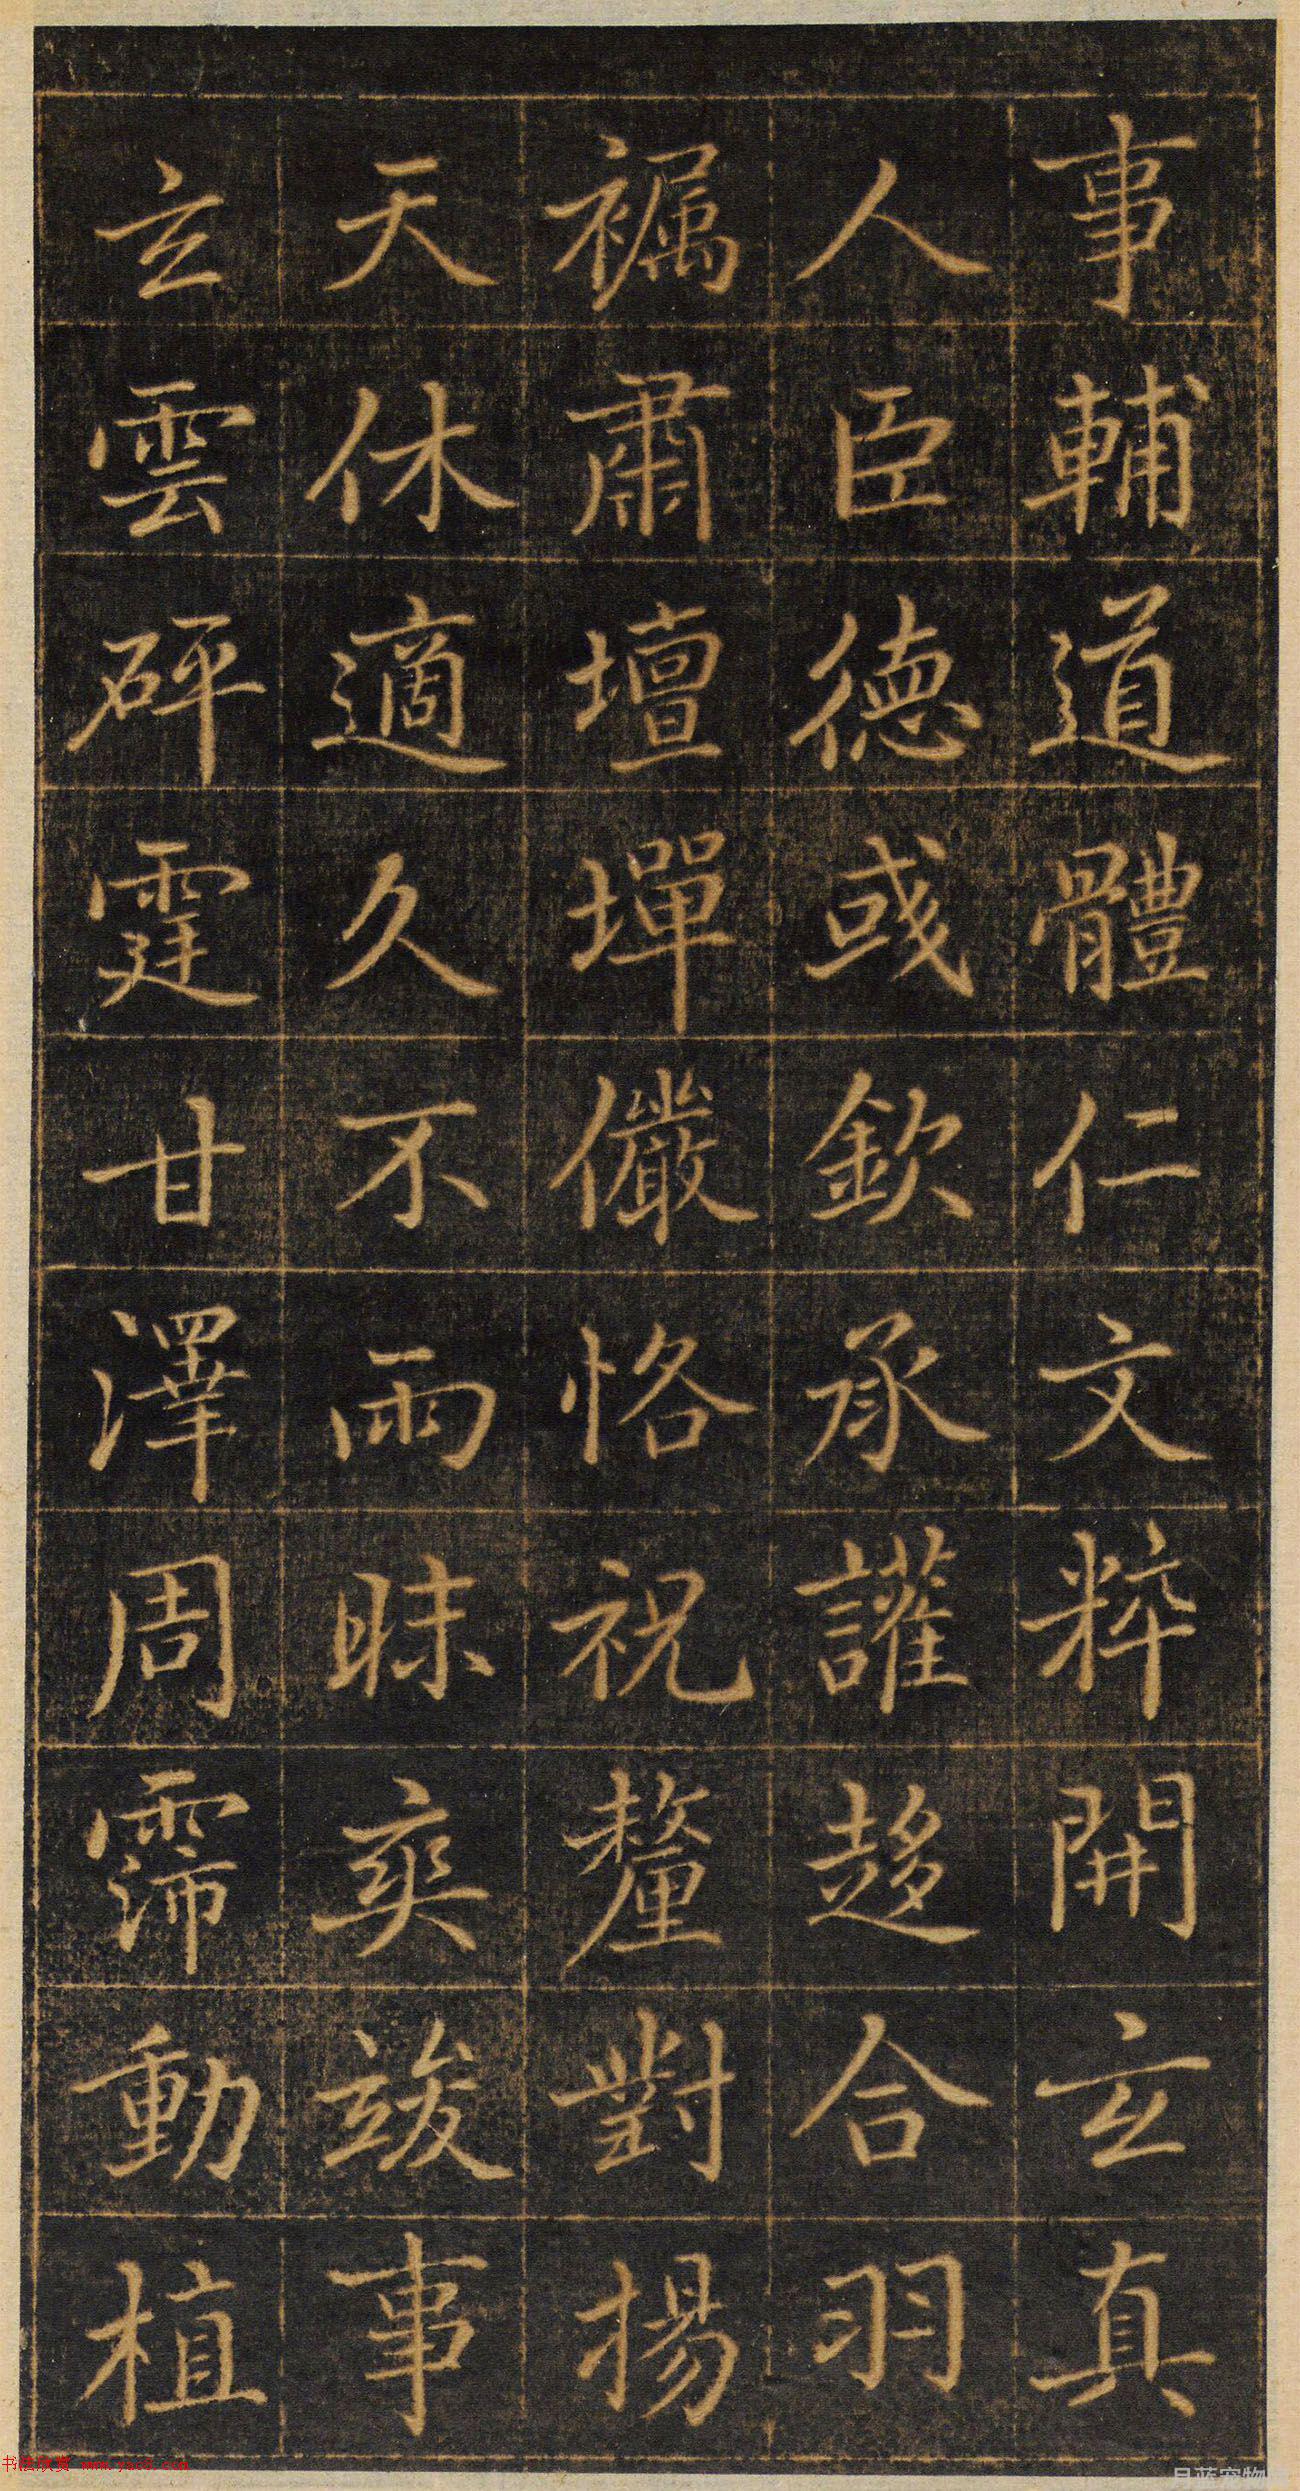 事輔道體仁文粹開玄真
人臣德彧欽承讙趍合羽
襡肅壇墠儼恪祝釐對揚
天休適久不雨眛爽竣事
玄雲砰霆甘澤周霈動植
书法欣赏 www.yac8.com